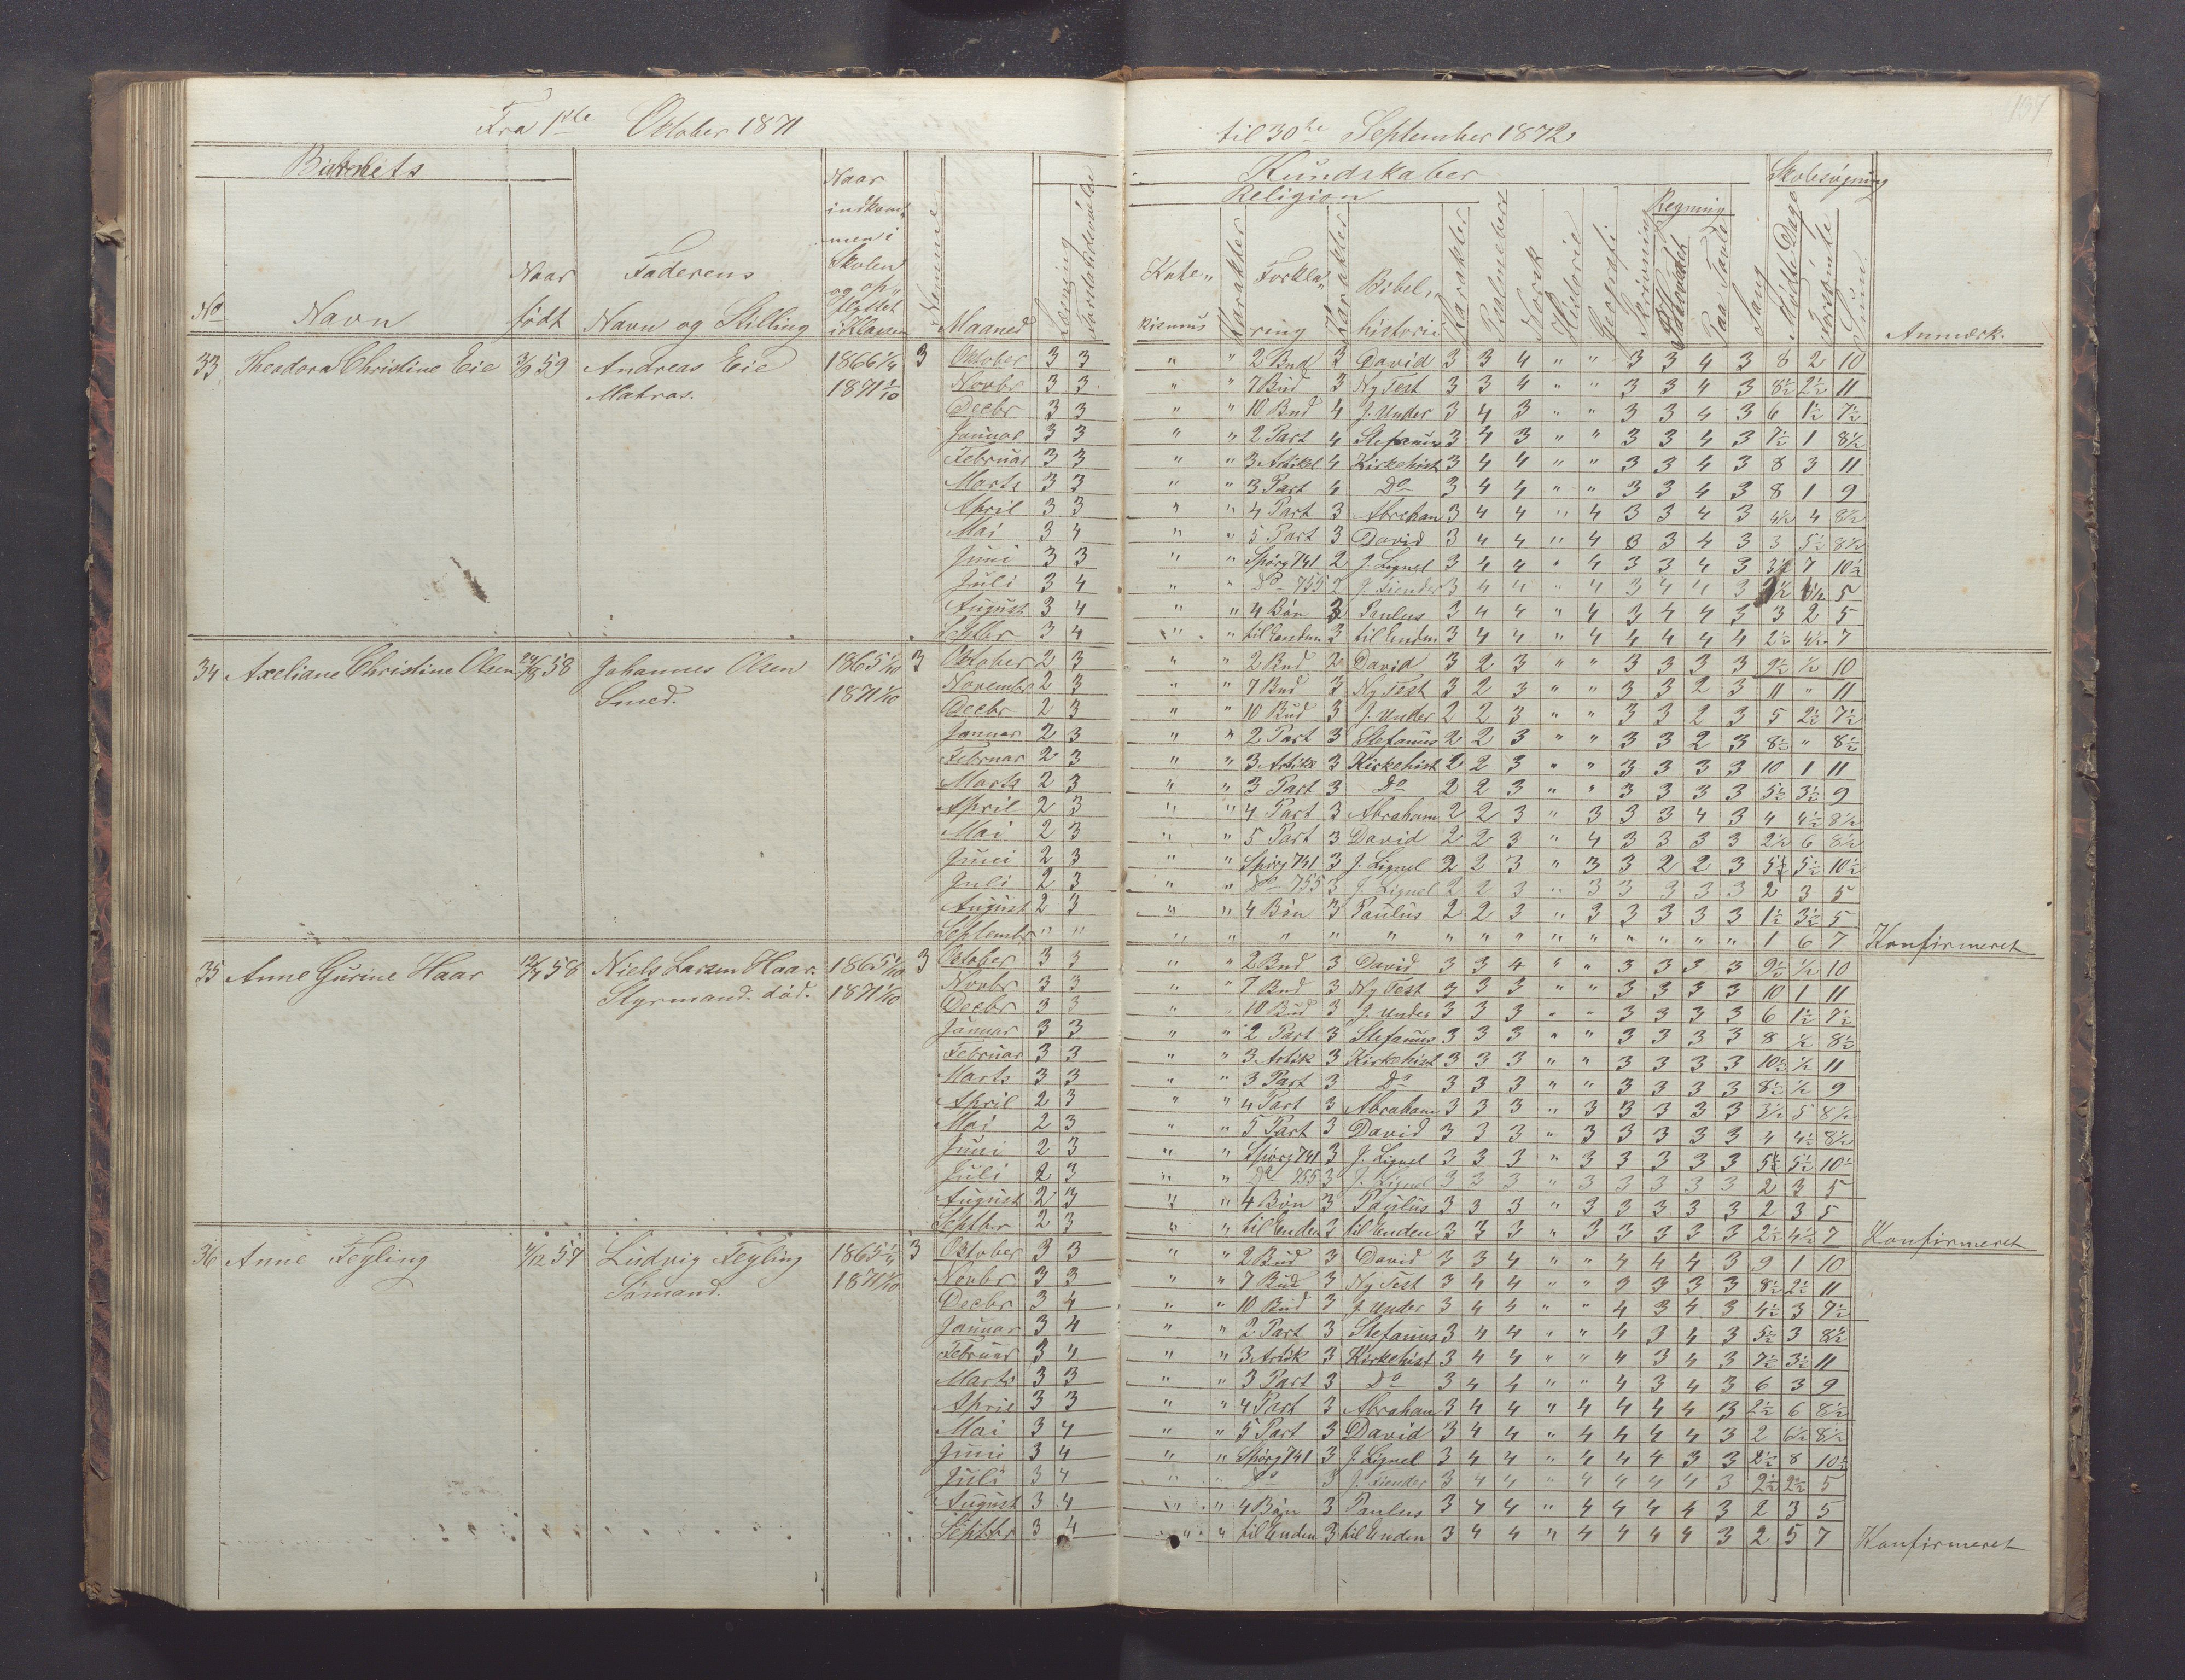 Fra 1ste October 1871 til 30te September 1872
137
Barnets
Kundskaber
Skolesøgning
Religion
Regning
No
Navn
Naar født
Faderens Navn og Stilling
Naar indkommen i Skolen og opflyttet i Klassen
Nummer
Maaned
Læsning
Forstandsøvelse
Katekismus
Karakter
Forklaring
Karakter
Bibelhistorie
Karakter
Psalmebog
Norsk
Historie
Geografi
Skrivning
Paa Tavle
Sang
Mødte Dage
Forsømte
Sum
Anmærk.
33 Theodora Christine Eie 3/9 59 Andreas Eie 1866 1/4 3 October 3 3 " " 2 Bud 3 David 3 3 4 " " 3 3 4 3 8 2 10
Matros. 1871 1/10 Novbr 3 3 " " 7 Bud 3 Ny Test 3 3 4 " " 3 3 4 3 8½ 2½ 11
Decbr 3 3 " " 10 Bud 4 J. Under 3 4 3 " " 3 3 4 3 6 1½ 7½
Januar 3 3 " " 2 Part 4 Stefanus 3 4 3 " " 3 3 4 3 7½ 1 8½
Februar 3 3 " " 3 Artikel 4 Kirkehist 3 4 4 " " 3 3 4 3 8 3 11
Marts 3 3 " " 3 Part 4 Do 3 4 4 " " 3 3 4 3 8 1 9
April 3 3 " " 4 Part 3 Abreham 3 4 4 " 4 3 3 4 3 4½ 4 8½
Mai 3 4 " " 5 Part 3 David 3 4 4 " 4 3 3 4 3 3 5½ 8½
Juni 3 3 " " Spørg 741 2 J. Lignel 3 4 4 " 4 3 3 4 3 3½ 7 10½
Juli 3 4 " " Do 755 2 J. Fiender 3 4 4 " 4 3 4 4 3 5
August 3 4 " " 4 Bøn 3 Paulus 3 4 4 " 4 3 4 4 3 3 2 5
Septbr 3 4 " " til Enden 3 til Enden 3 4 4 " 4 4 4 4 4 2½ 4½ 7
34 Axeliane Christine Olsen 24/8 58 Johannes Olsen 1865 1/10 3 October 2 3 " " 2 Bud 2 David 3 2 3 " " 3 3 3 3 9½ ½ 10
Smed. 1871 1/10 Novembr 2 3 " " 7 Bud 3 Ny Test 3 2 3 " " 3 3 2 3 11 " 11
Decbr 2 3 " " 10 Bud 3 J. Under 2 2 3 " " 3 3 2 3 5 2½ 7½
Januar 2 3 " " 2 Part 3 Stefanus 2 2 3 " " 3 3 2 3 8½ " 8½
Februar 2 3 " " 3 Artike 3 Kirkehist 2 2 3 " " 3 3 3 3 10 1 11
Marts 2 3 " " 3 Part 3 Do 2 2 3 " " 3 3 3 3 5½ 3½ 9
April 2 3 " " 4 Part 3 Abraham 2 2 3 " 3 3 3 4 3 4 4½ 8½
Mai 2 3 " " 5 Part 3 David 2 2 3 " 4 3 3 3 3 2½ 6 8½
Juni 2 3 " " Spørg 741 3 J. Lignel 2 2 3 " 3 3 2 2 3 5 5½ 10½
Juli 2 3 " " Do 755 3 J. Lignel 2 2 3 " 3 3 3 3 3 2 3 5
August 2 3 " " 4 Bøn 3 Paulus 2 2 3 " 3 3 3 3 3 1½ 3½ 5
Septembr " " " " " " " " " " " " " " " " 1 6 7 Konfirmeret
35 Anne Gurine Haar 12/7 58 Niels Larsen Haar. 1865 1/10 3 October 3 3 " " 2 Bud 3 David 3 3 4 " " 3 3 3 3 9½ ½ 10
Styrmand. død. 1871 1/10 Novbr 3 3 " " 7 Bud 3 Ny Test 3 3 3 " " 3 3 3 3 10 1 11
Decbr 3 3 " " 10 Bud 3 J. Under 3 3 3 " " 3 3 3 3 6 1½ 7½
Januar 3 3 " " 2 Part 3 Stefanus 3 3 3 " " 3 3 3 3 8 ½ 8½
Februar 3 3 " " 3 Artik 3 Kirkehist 3 3 3 " " 3 3 3 3 10½ ½ 11
Marts 3 3 " " 3 Part 3 Do 3 3 3 " " 3 3 3 3 8½ ½ 9
April 2 3 " " 4 Part 3 Abraham 3 3 3 " 3 3 3 3 3 3½ 5 8½
Mai 2 3 " " 5 Part 3 David 3 3 3 " 3 3 3 3 3 4 4½ 8½
Juni 2 3 " " Spørg 741 3 J. Lignel 3 3 3 " 3 3 3 3 3 5 5½ 10½
Juli 2 3 " " Do 755 3 J. Lignel 3 3 3 " 3 3 3 3 3 2 3 5
August 2 3 " " 4 Bøn 3 Paulus 3 3 3 " 3 3 3 3 3 2 3 5
Septbr 2 3 " " til Enden 3 til Enden 3 3 3 " 3 3 3 3 3 2½ 4½ 7 Konfirmeret
36 Anne Feyling 4/12 57 Ludvig Feyling 1865 1/4 3 October 3 3 " " 2 Bud 3 David 3 3 4 " " 4 4 4 3 9 1 10
Sømand. 1871 1/10 Novbr 3 3 " " 7 Bud 3 Ny Test 3 4 4 " " 3 3 3 3 8½ 2½ 11
Decbr 3 4 " " 10 Bud 3 J. Under 3 4 4 " " 4 3 4 3 4½ 3 7½
Januar 3 4 " " 2 Part 3 Stefanus 3 4 4 " " 4 3 4 3 5½ 3 8½
Februar 3 4 " " 3 Artik 3 Kirkehist 3 4 4 " " 4 3 4 3 7½ 3½ 11
Marts 3 3 " " 3 Part 3 Do 3 4 4 " " 4 3 4 3 6 3 9
April 3 3 " " 4 Part 3 Abraham 3 4 4 " 4 4 4 4 3 2½ 6 8½
Mai 3 4 " " 5 Part 3 David 3 4 4 " 4 4 4 4 3 2 6½ 8½
Juni 3 4 " " Spørg 741 3 J. Lignel 3 4 4 " 4 4 4 3 3 2½ 8 10½
Juli 3 4 " " Do 3 J. Fiender 3 4 4 " 4 4 4 4 3 2½ 2½ 5
August 3 4 " " 4 Bøn 3 Paulus 3 4 4 " 4 4 4 4 3 2 3 5
Septbr 3 4 " " til Enden 3 til Enden 3 4 4 " 4 4 4 4 3 2 5 7 Konfirmeret